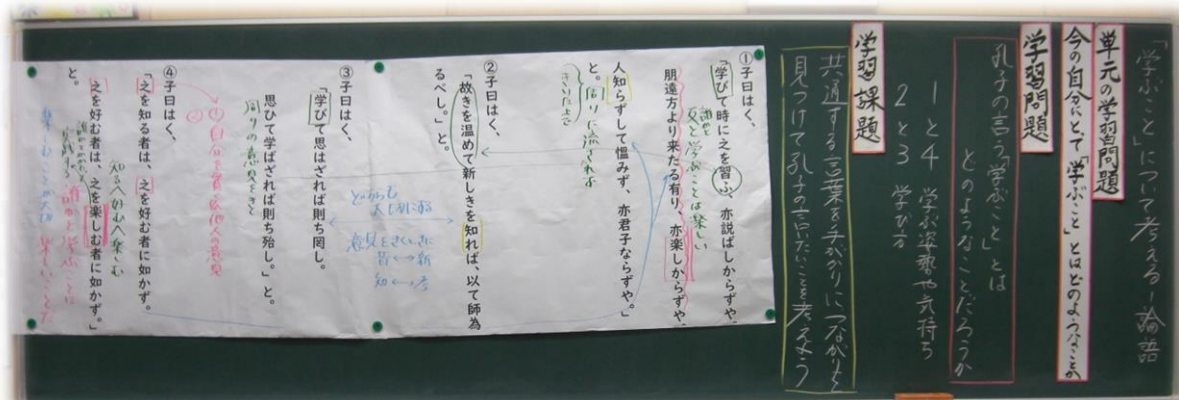 「学ぶこと」について考える―論語
単元の学習問題
今の自分にとって「学ぶこと」とはどのようなことか
学習問題
孔子の言う「学ぶこと」とは
どのようなことだろうか
1と4 学ぶ姿勢や気持ち
2と3 学び方
学習課題
共通する言葉を手がかりにつながりを
見つけて孔子の言いたいことを考えよう
①子曰はく、
「学びて時に之を習ふ、亦説ばしからずや。
友と学ぶことは楽しい
朋遠方より来たる有り、亦楽しからずや。
人知らずして慍みず、亦君子ならずや。」
と。
周りに流されず
②子曰はく、
「故きを温めて新しきを知れば、以て師為
るべし。」と。
どちらも
大切にする
意見をきくときに
昔⟷新
知⟷考
③子曰はく、
「学びて思はざれば則ち罔し。
思ひて学ばざれば則ち殆し。」と。
周りの意見をきく
④子曰はく、
「之を知る者は、之を好む者に如かず。
知る→好む→楽しむ
之を好む者は、之を楽しむ者に如かず。」
と。
誰かと学ぶことは
楽しいことだ
楽しむことが大切